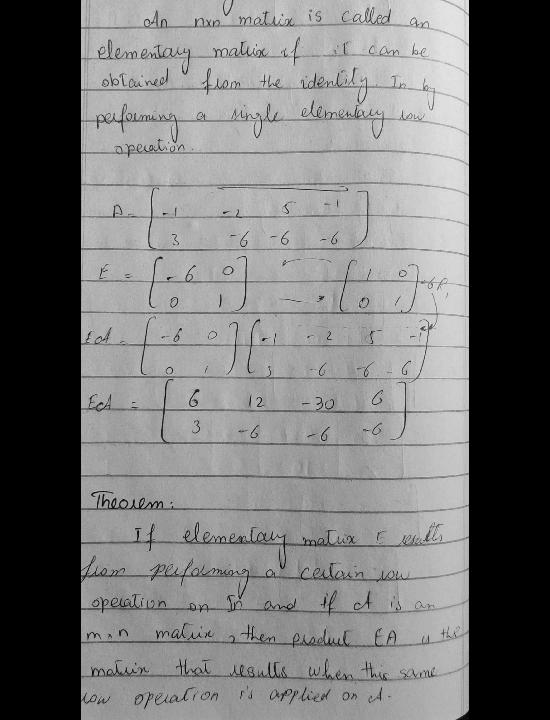 An nxn matrix is called an
elementary matrix if it can be
obtained from the identity In by
performing a single elementary row
operation.
A = [ -1 -2 5 -1
3 -6 -6 -6 ]
E = [ -6 0
0 1 ] [ 1 0
0 1 ] -6R1
EA = [ -6 0
0 1 ] [ -1 -2 5 -1
3 -6 -6 -6 ]
EA = [ 6 12 -30 6
3 -6 -6 -6 ]
Theorem:
If elementary matrix E results
from performing a certain row
operation on In and if A is an
m×n matrix, then product EA is the
matrix that results when this same
row operation is applied on A.